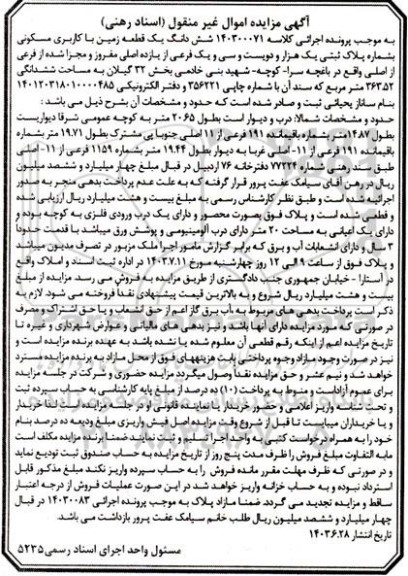 آگهی مزایده اموال غیر منقول (اسناد رهنی)
به موجب پرونده اجرائی کلاسه ۱۴۰۳۰۰۰۷۱ شش دانگ یک قطعه زمین با کاربری مسکونی
بشماره پلاک ثبتی یک هزار و دویست و سی و یک فرعی از یازده اصلی مفروز و مجزا شده از فرعی
از اصلی واقع در باغچه سرا- کوچه- شهید بنی خادمی بخش ۳۲ گیلان به مساحت ششدانگی
۳۶۳.۵۲ متر مربع که سند آن با شماره چاپی ۳۵۶۲۲۱ و دفتر الکترونیکی ۱۴۰۱۲۰۳۱۸۰۱۰۰۰۰۴۸۵
بنام ساناز یحیائی ثبت و صادر شده است که حدود و مشخصات آن بشرح ذیل می باشد :
حدود و مشخصات شمالا: درب و دیوار است بطول ۲۰.۶۵ متر به کوچه عمومی شرقا دیواریست
بطول ۱۴.۸۷ متر بشماره باقیمانده ۱۹۱ فرعی از ۱۱ اصلی جنوبا پی مشترک بطول ۱۹.۷۱ متر بشماره
باقیمانده ۱۹۱ فرعی از ۱۱- اصلی غربا به دیوار بطول ۱۹.۴۴ متر بشماره ۱۱۵۹ فرعی از ۱۱- اصلی
طبق سند رهنی شماره ۷۷۲۲۴ دفترخانه ۷۶ اردبیل در قبال مبلغ چهار میلیارد و ششصد میلیون
ریال در رهن آقای سیامک عفت پرور قرار گرفته که به علت عدم پرداخت بدهی منجر به صدور
اجرائیه شده است و طبق نظر کارشناس رسمی به مبلغ بیست و هشت میلیارد ریال ارزیابی شده
و قطعی شده است و پلاک فوق بصورت محصور و دارای یک درب ورودی فلزی به کوچه بوده و
دارای یک اعیانی به مساحت ۲۰ متر دارای درب آلومینیومی و پوشش ورق میباشد با قدمت حدوداً
۳ سال و دارای انشعابات آب و برق که برابر گزارش مامور اجرا ملک مزبور در تصرف مدیون میباشد
و پلاک فوق از ساعت ۹ الی ۱۲ روز چهارشنبه مورخ ۱۴۰۳.۷.۱۱ در اداره ثبت اسناد و املاک واقع
در آستارا - خیابان جمهوری جنب دادگستری از طریق مزایده به فروش می رسد. مزایده از مبلغ
بیست و هشت میلیارد ریال شروع و به بالاترین قیمت پیشنهادی نقدا فروخته می شود. لازم به
ذکر است پرداخت بدهی های مربوط به آب برق گاز اعم از حق انشعاب و یا حق اشتراک و مصرف
در صورتی که مورد مزایده دارای آنها باشد و نیز بدهی های مالیاتی و عوارض شهرداری و غیره تا
تاریخ مزایده اعم از اینکه رقم قطعی آن معلوم شده یا نشده باشد به عهده برنده مزایده است و
نیز در صورت وجود مازاد وجوه پرداختی بابت هزینههای فوق از محل مازاد به برنده مزایده مسترد
خواهد شد و نیم عشر و حق مزایده نقداً وصول میگردد مزایده حضوری و شرکت در جلسه مزایده
برای عموم آزاد است و منوط به پرداخت (۱۰) ده درصد از مبلغ پایه کارشناسی به حساب سپرده ثبت
و تحت شناسه واریز اعلامی و حضور خریدار یا نماینده قانونی او در جلسه مزایده است لذا خریدار
و یا خریداران میبایست تا قبل از شروع وقت مزایده اصل فیش واریزی مبلغ ودیعه ده درصد بنام
خود را به همراه درخواست کتبی به واحد اجرا تسلیم و ثبت نمایند ضمنا برنده مزایده مکلف است
مابه التفاوت مبلغ فروش را ظرف مدت پنج روز از تاریخ مزایده به حساب صندوق ثبت تودیع نماید
و در صورتی که ظرف مهلت مقرر مانده فروش را به حساب سپرده واریز نکند مبلغ مذکور قابل
استرداد نبوده و به حساب خزانه واریز خواهد شد در این صورت عملیات فروش از درجه اعتبار
ساقط و مزایده تجدید می گردد ضمنا مازاد پلاک به موجب پرونده اجرائی ۱۴۰۳۰۰۰۸۳ در قبال
چهار میلیارد و ششصد میلیون ریال طلب خانم سیامک عفت پرور بازداشت می باشد.
تاریخ انتشار ۱۴۰۳.۶.۲۸
مسئول واحد اجرای اسناد رسمی ۵۲۳۵